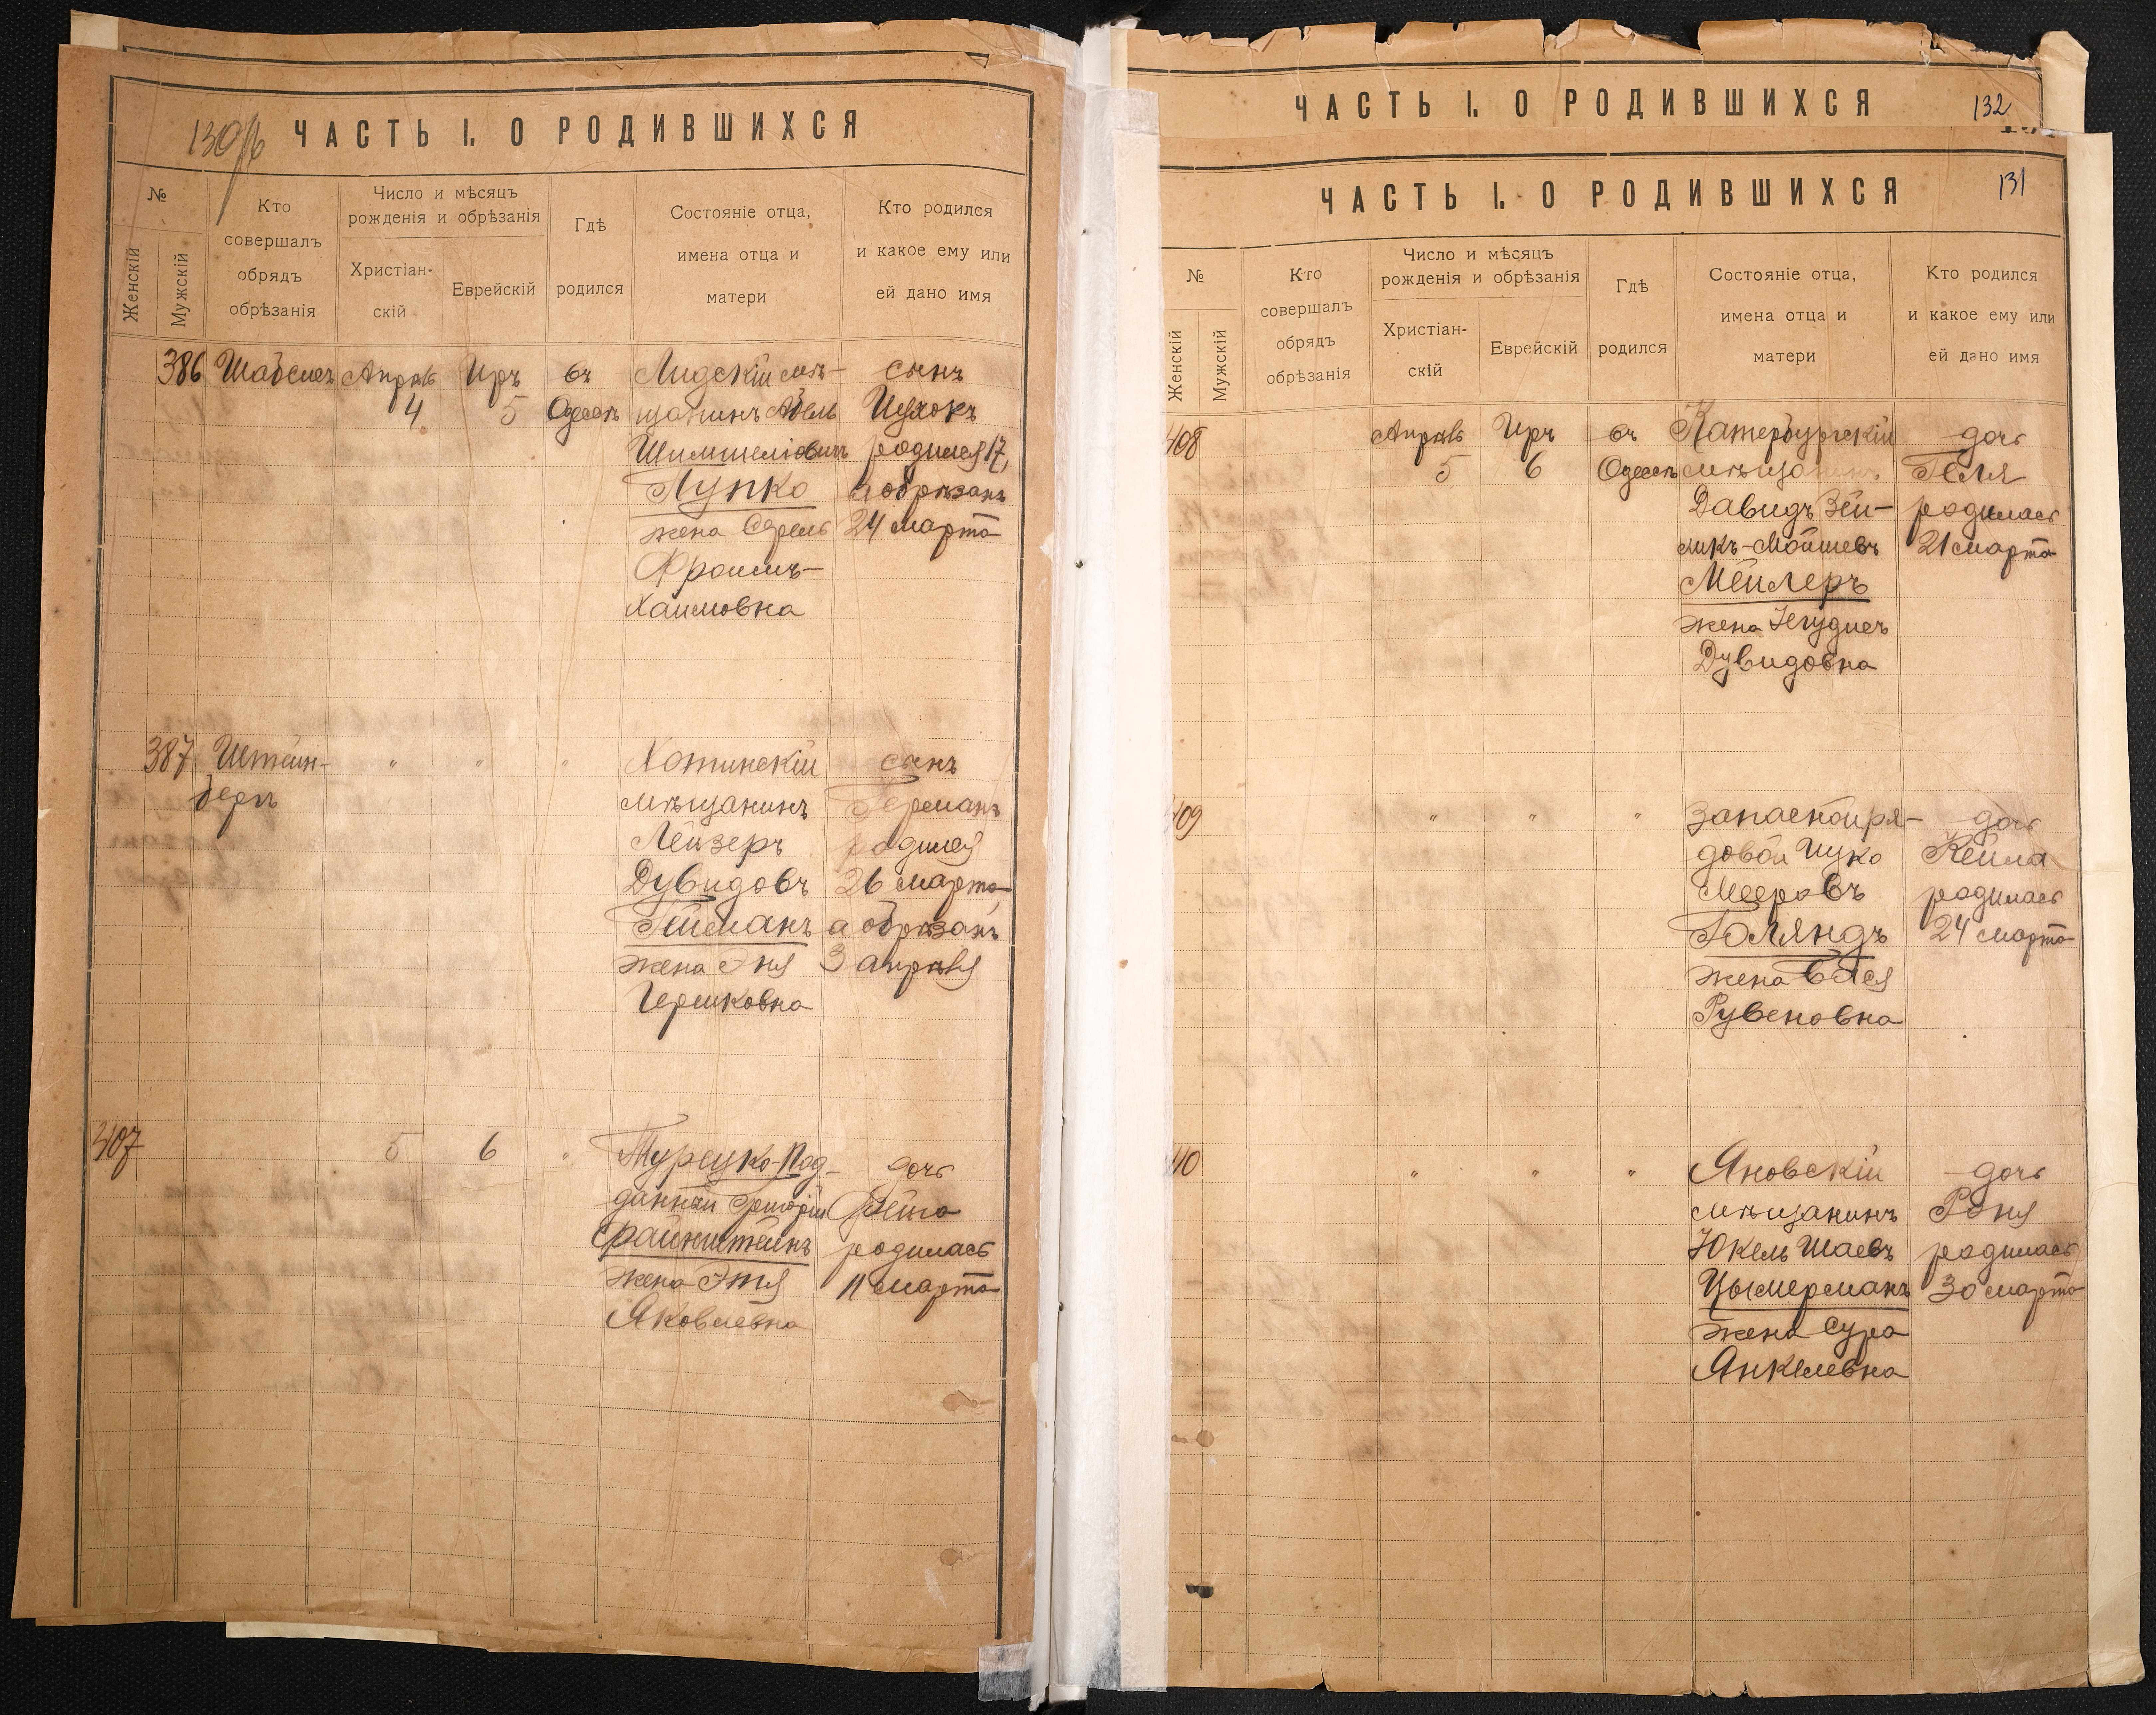 130об
ЧАСТЬ I. О РОДИВШИХСЯ
№
Женскій
Мужскій
Кто
совершалъ
обрядъ
обрѣзанія
Число и мѣсяцъ
рожденія и обрѣзанія
Христіан-
скій
Еврейскій
Гдѣ
родился
Состояніе отца,
имена отца и
матери
Кто родился
и какое ему или
ей дано имя
386
Апрѣль
4
Иръ
5
въ
Одессѣ
Лидскій мѣ-
щанинъ
Шимшеліовичъ
Лупко
жена
Фроимъ-
Хаимовна
сынъ
Ицхокъ
родился 17,
а обрѣзанъ
24 марта
387
Штейн-
бергъ
"
"
"
Хотинскій
мѣщанинъ
Лейзеръ
Дувидовъ
Гейманъ
жена Эня
Гершковна
сынъ
Германъ
родился
26 марта,
а обрѣзанъ
3 апрѣля
407
5
6
"
Турецко-Под-
данный Григорій
Файнштейнъ
жена Этя
Яковлевна
дочь
родилась
11 марта
ЧАСТЬ I. О РОДИВШИХСЯ
132
ЧАСТЬ I. О РОДИВШИХСЯ
131
№
Женскій
Мужскій
Кто
совершалъ
обрядъ
обрѣзанія
Число и мѣсяцъ
рожденія и обрѣзанія
Христіан-
скій
Еврейскій
Гдѣ
родился
Состояніе отца,
имена отца и
матери
Кто родился
и какое ему или
ей дано имя
408
Апрѣль
5
Иръ
6
въ
Одессѣ
Катербургскій
мѣщанинъ
Давидъ Зей-
ликъ-Мошшевъ
Мейлеръ
жена
Дувидовна
дочь
Геля
родилась
21 марта
409
"
"
"
запасной ря-
довой Ицко
Мееровъ
Голяндъ
жена Бася
Рувеновна
дочь
Кейла
родилась
24 марта
410
"
"
"
Яновскій
мѣщанинъ
Юкель Шаевъ
Цымерманъ
жена Сура
Янкелевна
дочь
Роня
родилась
30 марта